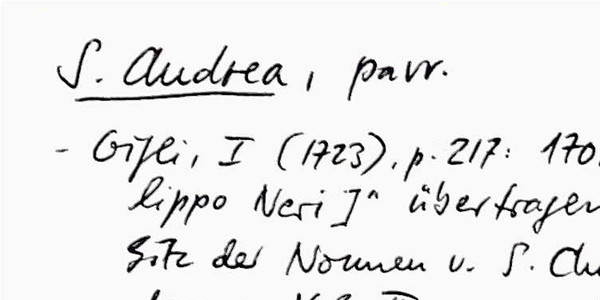 S. Andrea, parr.
- Gigli, I (1723), p. 217: 170
lippo Neri]" übertragen
Sitz der Nonnen v. S.